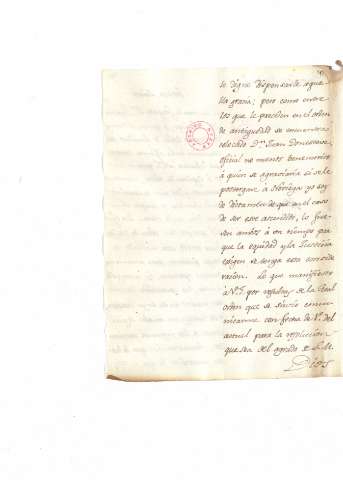 se digne dispensarle aque-
lla gracia; pero como entre
los que le preceden en el orden
de antiguedad se encuentra
colocado Dn. Juan
oficial no menos benemerito
á quien se agraviaria si se le
postergase á Noriega, yo soy
de dictamen de que en el caso
de ser este ascendido, lo fue-
sen ambos á un tiempo por
que la equidad y la Justicia
exigen se tenga esta conside-
racion. Lo que manifiesto
á V.E. por de la Real
orden que se sirvió comu-
nicarme con fecha de del
actual para la resolucion
que sea del agrado de S.M.
Dios